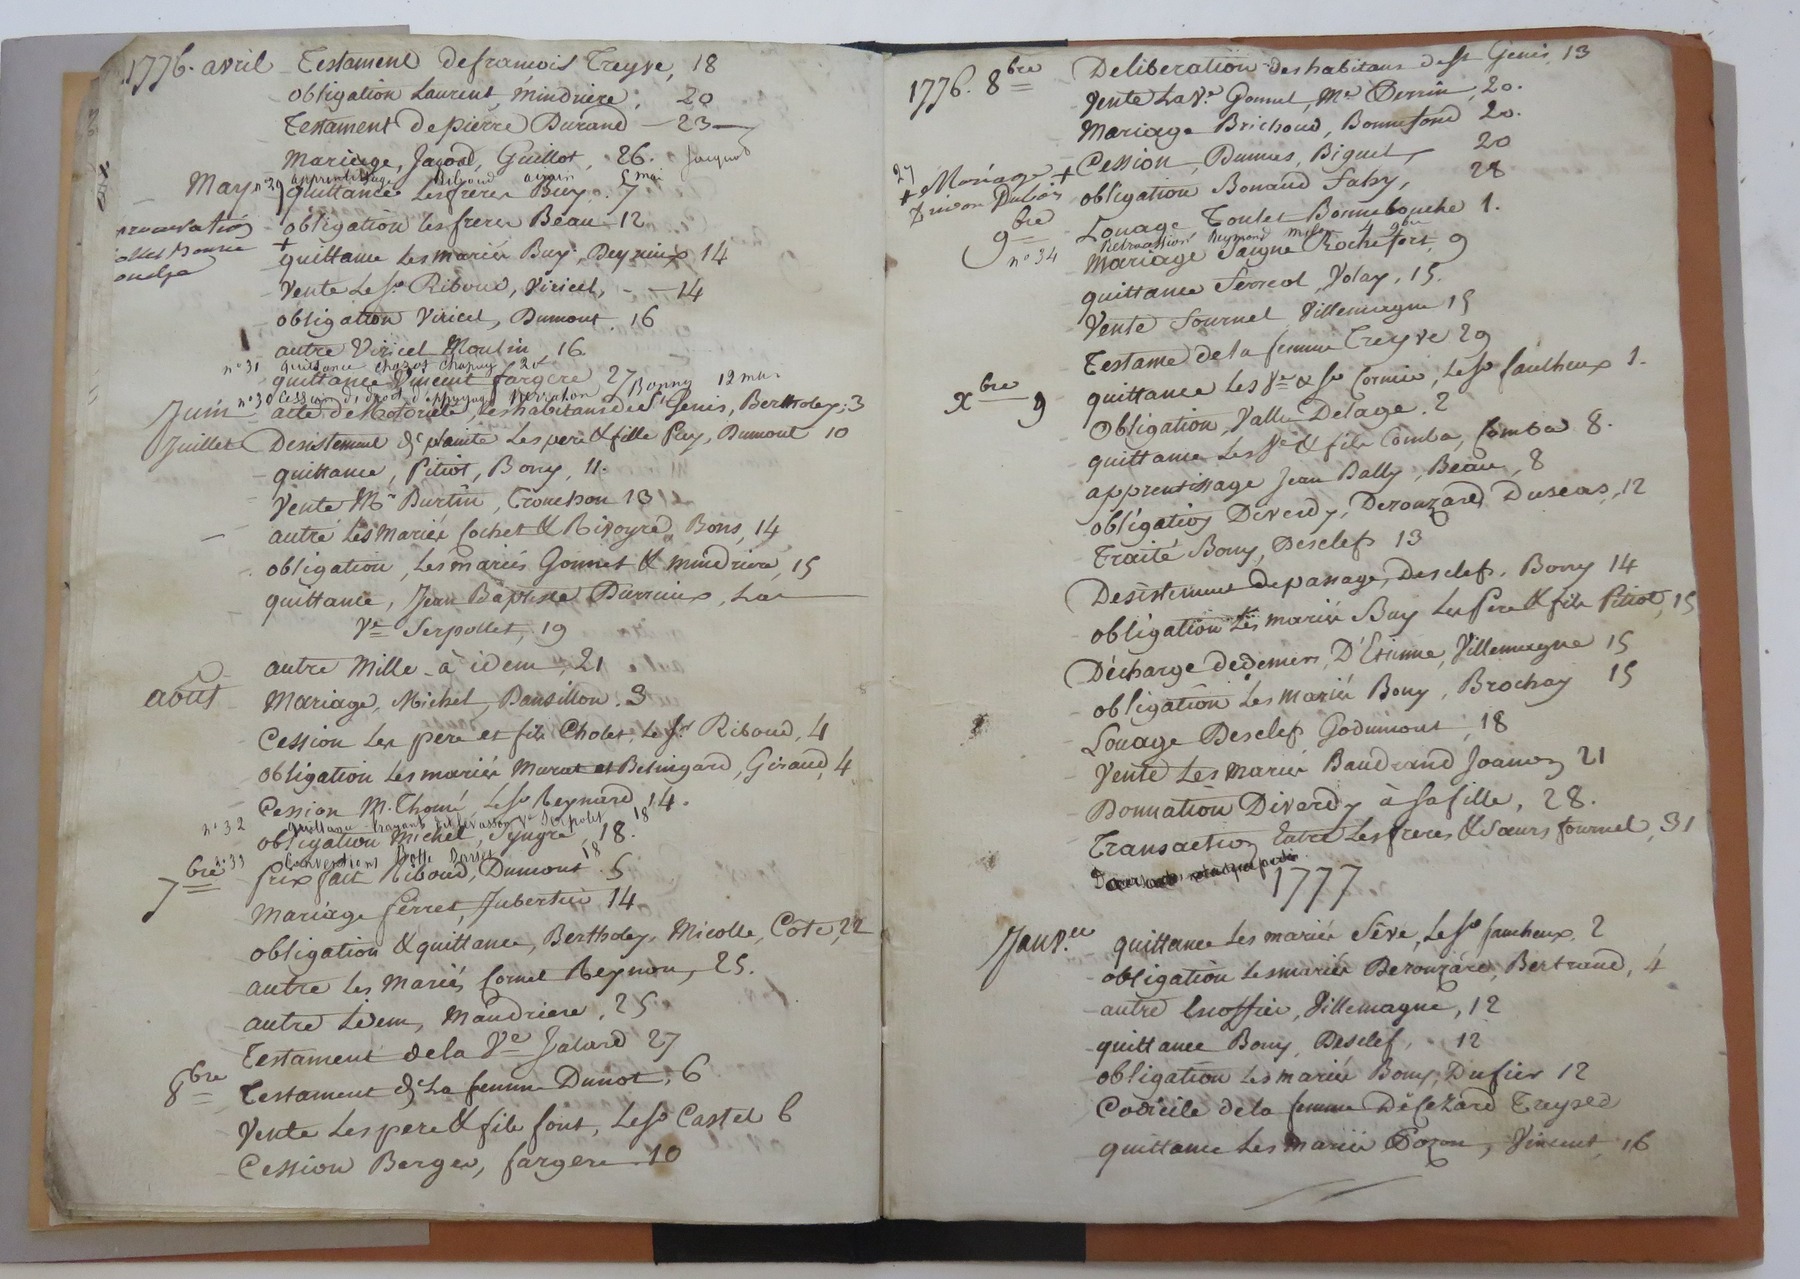 1776. avril Testament de francois Treyve, 18
obligation Laurent, Mindriere, 20
Testament de pierre Durand — 23 —
Mariage, Jacod, Guillot, 26.
n° 29 apprentissage 5 mai
May quittance Les freres Buy. 7
obligation les freres Beau 12
+
quittance Les mariés Buy, Deyrieux 14
vente Le Sr Riboud, Viricel, - - 14
obligation Viricel, Dumont, 16
autre Viricel Moulin 16
n° 31 quittance Chazot Chapuy 20
quittance Vincent fargere, 27
n° 30 Cession de droit Bonny 12
Juin acte de Notorieté, Les habitans de St Genis, Bertholey, 3
Juillet Desistement de plainte Les pere & fille Pay, Dumont 10
quittance, Pitiot, Bony, 11.
Vente Mr Burtin, Trouchon 13
autre Les Mariés Cochet & Rivoyre, Bons, 14
obligation, Les mariés Gonnet & mindriere, 15
quittance, Jean Baptiste Durrieux, La
Ve Serpollet, 19
autre Mille à idem, 21
août Mariage, Michel, Pansillon, 3
Cession Les pere et fils Cholet, Le Sr Riboud, 4
obligation Les mariés Murat et Belingard, Giraud, 4
Cession M. Thomé Le Sr Reynard 14.
n° 32 quittance Serpolet 18
obligation Michel, Syngre, 18.
n° 33 Conventions 18
7bre prix fait Riboud, Dumont 5
Mariage ferret, Jubertier 14
obligation & quittance, Bertholey, Micolle, Côte, 22
autre les Mariés Cornet Reymon, 25.
autre idem, Mandriere, 25
Testament de la Ve Jalard 27
8bre Testament de La femme Dumot, 6
Vente Les pere & fils font, Le Sr Castel 6
Cession Berger, fargere 10
1776. 8bre Deliberation des habitans de St Genis, 13
Vente La Ve Gonnet, Me Perrin, 20.
Mariage Brichoud, Bonnefond 20.
Cession, Dumas, Biguet, 20
27 + Mariage +
obligation Bonard Fahy, 28
9bre Louage Toulet Bonnebouche 1.
n° 34 Retrocession Reymond 4 9bre
Mariage Saigne Rochefort, 9
quittance Serrcol, Volay, 15.
Vente fournel Villemagne 15
Testame de la femme Treyve 29
Xbre quittance Les Ve & Sr Cormier, Le Sr faulheux 1.
9 Obligation, Valla Delage. 2
quittance Les Ve & fils Comba, Comba 8.
apprentissage Jean Bally, Beau, 8
obligation Diverdy, Derouzard Duseas, 12
Traité Bony, Desclefs 13
Desistement de passage, Desclefs, Bony 14
obligation Les mariés Buy Les Pere & fils Pitiot, 15
Décharge de deniers, D'Etienne, Villemagne 15
obligation Les mariés Bony, Brochay 15
Louage Desclefs Godumont, 18
Vente Les mariés Baudrand Joanon 21
Donnation Diverdy à sa fille, 28.
Transaction Entre Les freres & sœurs fournel, 31
1777
Janver quittance Les mariés Séve, Le Sr faucheux, 2
obligation Les mariés Derouzard, Bertrand, 4
autre Enoffier, Villemagne, 12
quittance Bony, Desclef, 12
obligation Les mariés Bony, Dufier 12
Codicile de la femme Décezard Treyve
quittance Les mariés Cozon, Vincent, 16